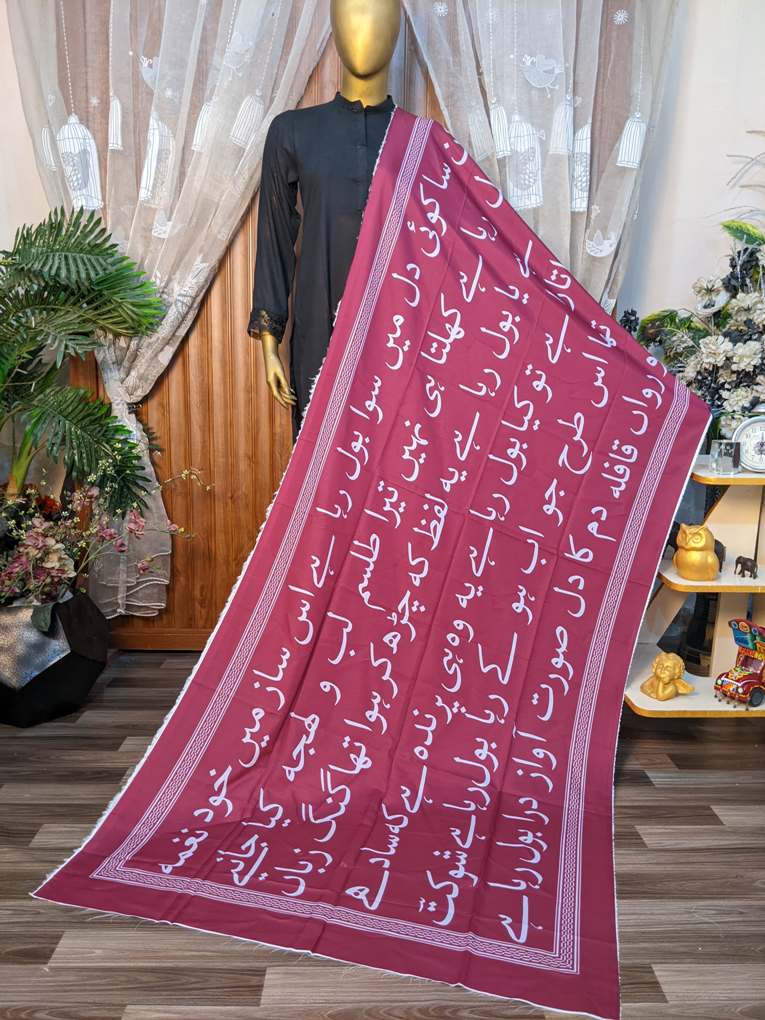 سا کوئی دل میں سوا بول رہا ہے اس ساز میں خود نغمہ
رہا ہے کھلتا ہی نہیں تیرا طلسم لب و لہجہ کیا جانیے
ہے یا بول رہا ہے یہ لفظ کہ چڑھ کر ہوا تھا گنگ زباں
ہے تو کیا بول رہا ہے یہ وہ ہی پرندہ ہے کہ سادھے
تھا اس طرح جو اب ہو کے رہا بول رہا ہے شوکت
رواں قافلہ دم کا دل صورت آواز درا بول رہا ہے